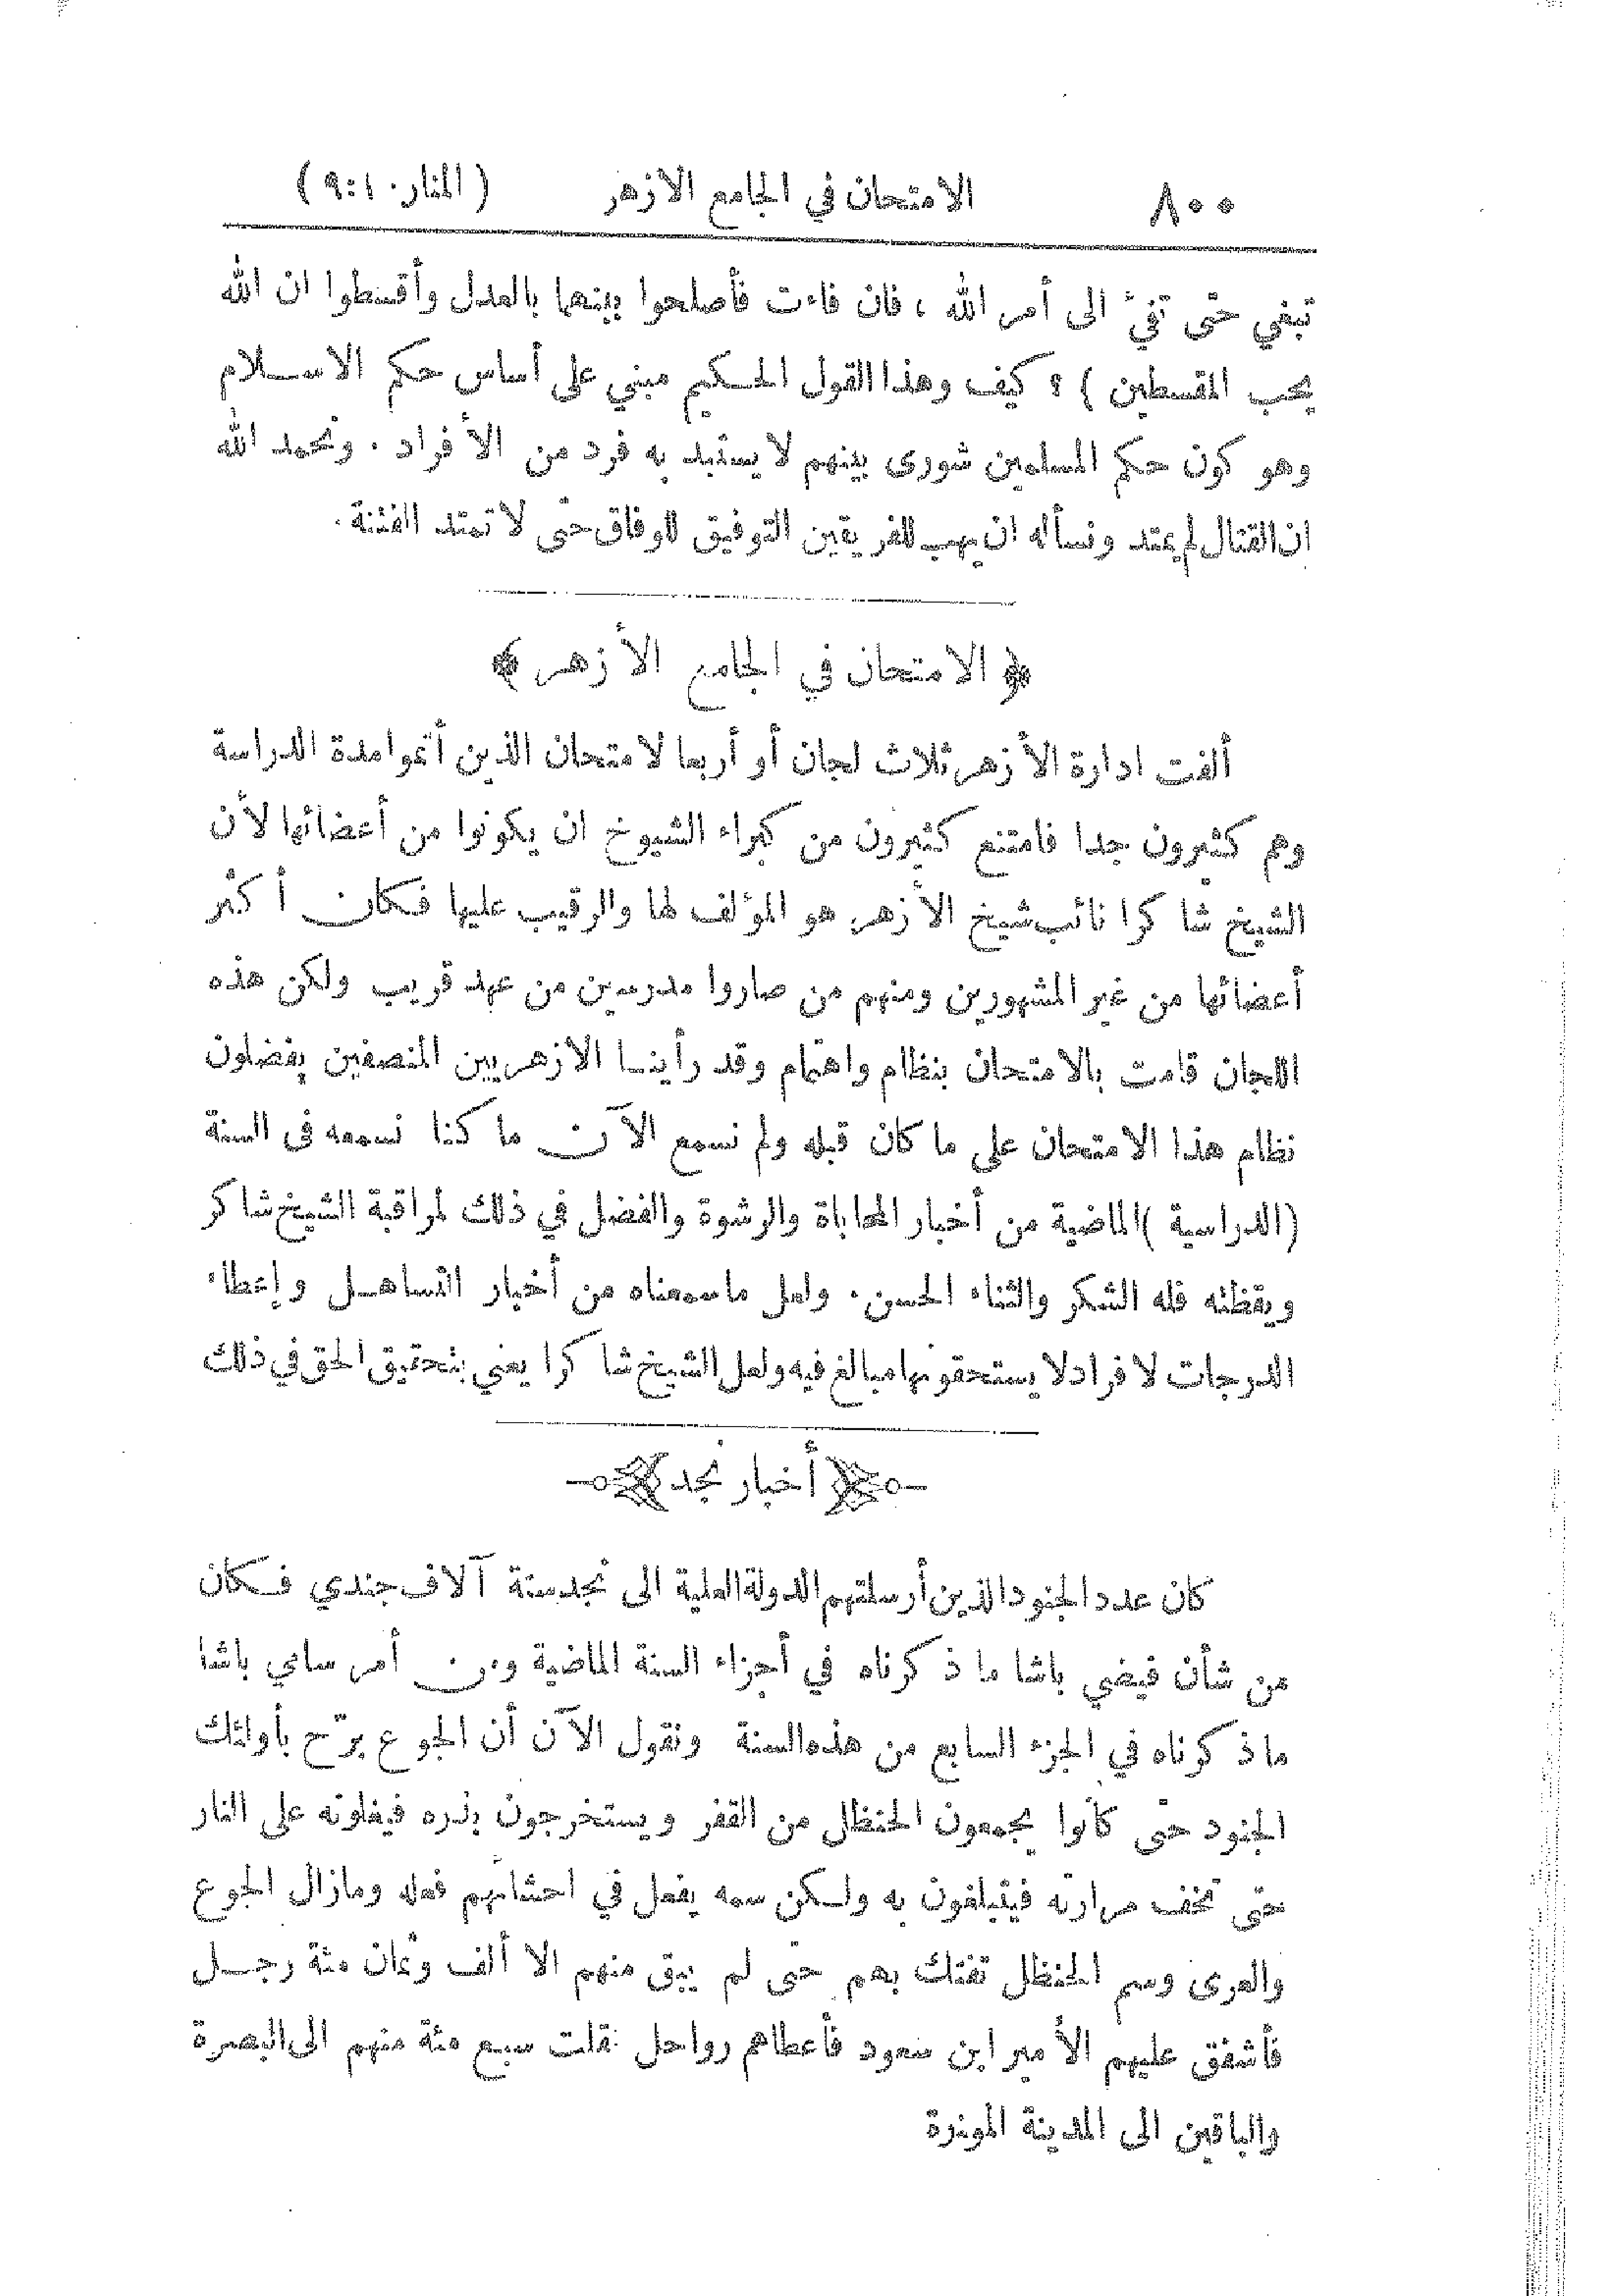 ٨٠٠ الامتحان في الجامع الازهر (المنار ١٠:٩)
تبغي حتى تفيء الى أمر الله ، فان فاءت فأصلحوا بينهما بالعدل وأقسطوا ان الله
يحب المقسطين ) ؟ كيف وهذا القول الحكيم مبني على أساس حكم الاسلام
وهو كون حكم المسلمين شورى بينهم لا يستبد به فرد من الأفراد . ونحمد الله
ان القتال لم يمتد ونسأله ان يهب للفريقين التوفيق للوفاق حتى لا تمتد الفتنة .
﴿ الامتحان في الجامع الأزهر ﴾
ألفت ادارة الأزهر ثلاث لجان أو أربعا لامتحان الذين أتموا مدة الدراسة
وهم كثيرون جدا فامتنع كثيرون من كبراء الشيوخ ان يكونوا من أعضائها لأن
الشيخ شاكرا نائب شيخ الأزهر هو المؤلف لها والرقيب عليها فكان أكثر
أعضائها من غير المشهورين ومنهم من صاروا مدرسين من عهد قريب ولكن هذه
اللجان قامت بالامتحان بنظام واهتمام وقد رأينا الازهريين المنصفين يفضلون
نظام هذا الامتحان على ما كان قبله ولم نسمع الآن ما كنا نسمعه في السنة
(الدراسية )الماضية من أخبار المحاباة والرشوة والفضل في ذلك لمراقبة الشيخ شاكر
ويقظته فله الشكر والثناء الحسن . ولعل ما سمعناه من أخبار التساهل وإعطاء
الدرجات لافراد لا يستحقونها مبالغ فيه ولعل الشيخ شاكرا يعني بتحقيق الحق في ذلك
أخبار نجد
كان عدد الجنود الذين أرسلتهم الدولة العلية الى نجد ستة آلاف جندي فكان
من شأن فيضي باشا ما ذكرناه في أجزاء السنة الماضية ومن أمر سامي باشا
ما ذكرناه في الجزء السابع من هذه السنة ونقول الآن أن الجوع برّح بأولئك
الجنود حتى كانوا يجمعون الحنظل من القفر ويستخرجون بذره فيغلونه على النار
حتى تخف مرارته فيتبلغون به ولكن سمه يفعل في احشائهم فعله ومازال الجوع
والعرى وسم الحنظل تفتك بهم حتى لم يبق منهم الا ألف وثمان مئة رجل
فأشفق عليهم الأمير ابن سعود فأعطاهم رواحل نقلت سبع مئة منهم الى البصرة
والباقين الى المدينة المونرة